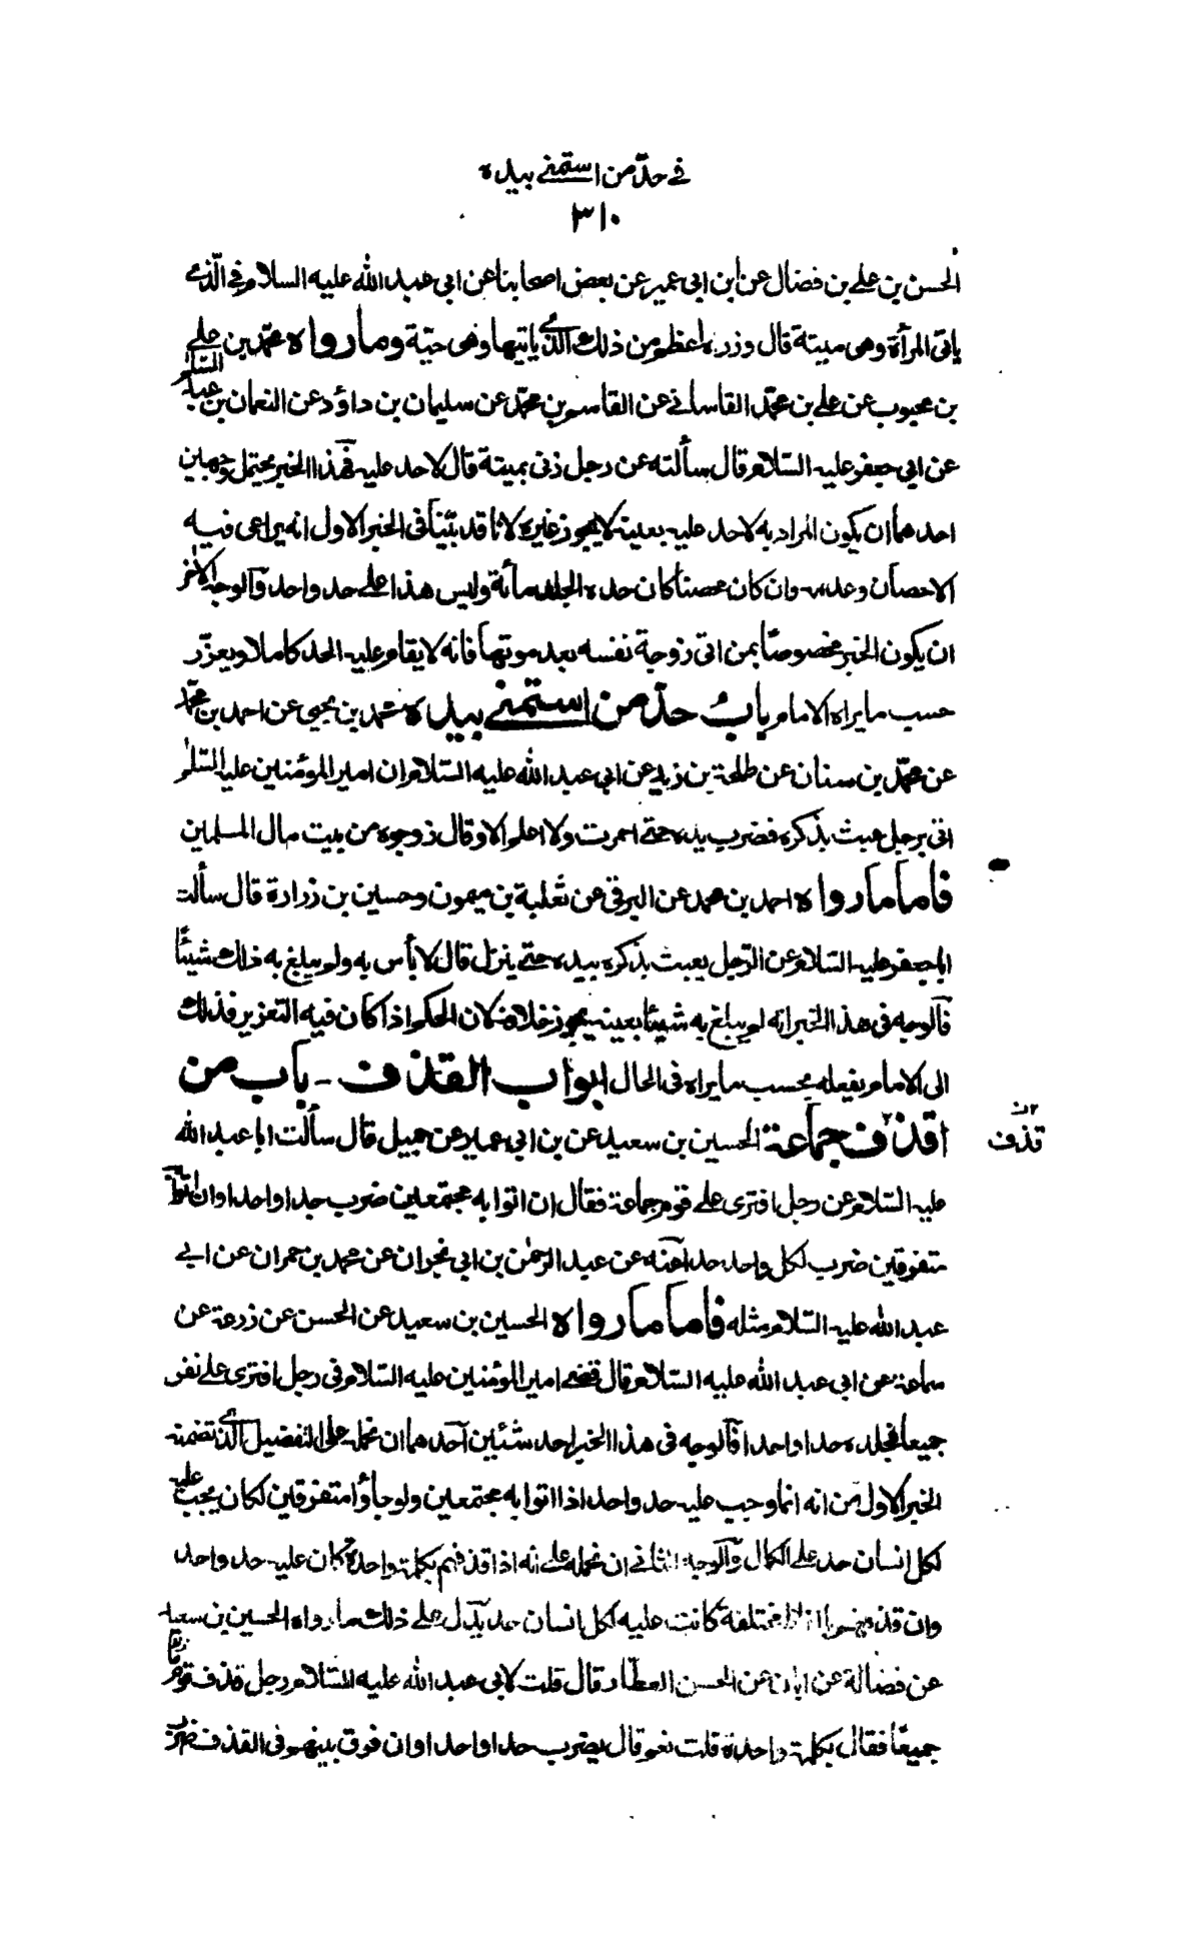 في حدّ من استمنى بيده
٣١٠
الحسن بن علي بن فضال عن ابن ابى عمير عن بعض اصحابنا عن ابى عبد الله عليه السلام فى الّذى
ياتى المرأة وهى ميتة قال وزره اعظم من ذلك الذى ياتيها وهى حيّة وما رواه محمّد بن على
بن محبوب عن على بن محمّد القاسانى عن القاسم بن محمّد عن سليمان بن داؤد عن النعمان بن عبد السّلام
عن ابى جعفر عليه السّلام قال سألته عن رجل زنى بميتة قال لا حد عليه فهذا الخبر يحتمل وجهين
احدهما ان يكون المراد به لا حد عليه بعينه لا يجوز غيره لانا قد بيّنا فى الخبر الاول انه يراعى فيه
الاحصان وعدمه وان كان محصنا كان حده الجلد مأئة وليس هذا على حد واحد والوجه الاخر
ان يكون الخبر مخصوصا بمن اتى زوجة نفسه بعد موتها فانه لا يقام عليه الحد كاملا ويعزّر
حسب ما يراه الامام باب حدّ من استمنى بيده محمد بن يحيى عن احمد بن محمّد
عن محمّد بن سنان عن طلحة بن زيد عن ابى عبد الله عليه السّلام ان امير المؤمنين عليه السّلم
اتى برجل عبث بذكره فضرب يده حتى احمرت ولا اعلم الا وقال زوجوه من بيت مال المسلمين
فاما ما رواه احمد بن محمد عن البرقى عن ثعلبة بن ميمون وحسين بن زرارة قال سألت
ابا جعفر عليه السّلام عن الرّجل يعبث بذكره بيده حتى ينزل قال لا بأس به ولم يبلغ به ذلك شيئًا
فالوجه فى هذا الخبر انه لم يبلغ به شيئا بعينه يجوز خلافه لان الحكم اذا كان فيه التعزير فذلك
الى الامام يفعله بحسب ما يراه فى الحال ابواب القذف - باب من
اقذف جماعة الحسين بن سعيد عن بن ابى عمير عن جميل قال سألت ابا عبد الله
٢ ن
قذف
عليه السّلام عن رجل افترى على قوم جماعة فقال ان اتوا به مجتمعين ضرب حدا واحدا وان اتوا به
متفرقين ضرب لكل واحد حدا عنه عن عبد الرحمن بن ابى نجران عن محمد بن حمران عن ابى
عبد الله عليه السّلام مثله فاما ما رواه الحسين بن سعيد عن الحسن عن زرعة عن
سماعة عن ابى عبد الله عليه السّلام قال قضى امير المؤمنين عليه السّلام فى رجل افترى على نفر
جميعا فجلده حدا واحدا فالوجه فى هذا الخبر احد شئيين احدهما ان نحمله على التفصيل الذى تضمنه
الخبر الاول من انه انما وجب عليه حد واحد اذا اتوا به مجتمعين ولو جاؤا متفرقين لكان يجب عليه
لكل انسان حد على الكمال والوجه الثانى ان نحمله على انه اذا قذفهم بكلمة واحدة كان عليه حد واحد
وان قذفهم بالفاظ مختلفة كانت عليه لكل انسان حد يدل على ذلك ما رواه الحسين بن سعيد
عن فضالة عن ابان عن الحسن العطّار قال قلت لابى عبد الله عليه السّلام رجل قذف قوما
جميعًا فقال بكلمة واحدة قلت نعم قال يضرب حدا واحدا وان فرق بينهم فى القذف ضرب